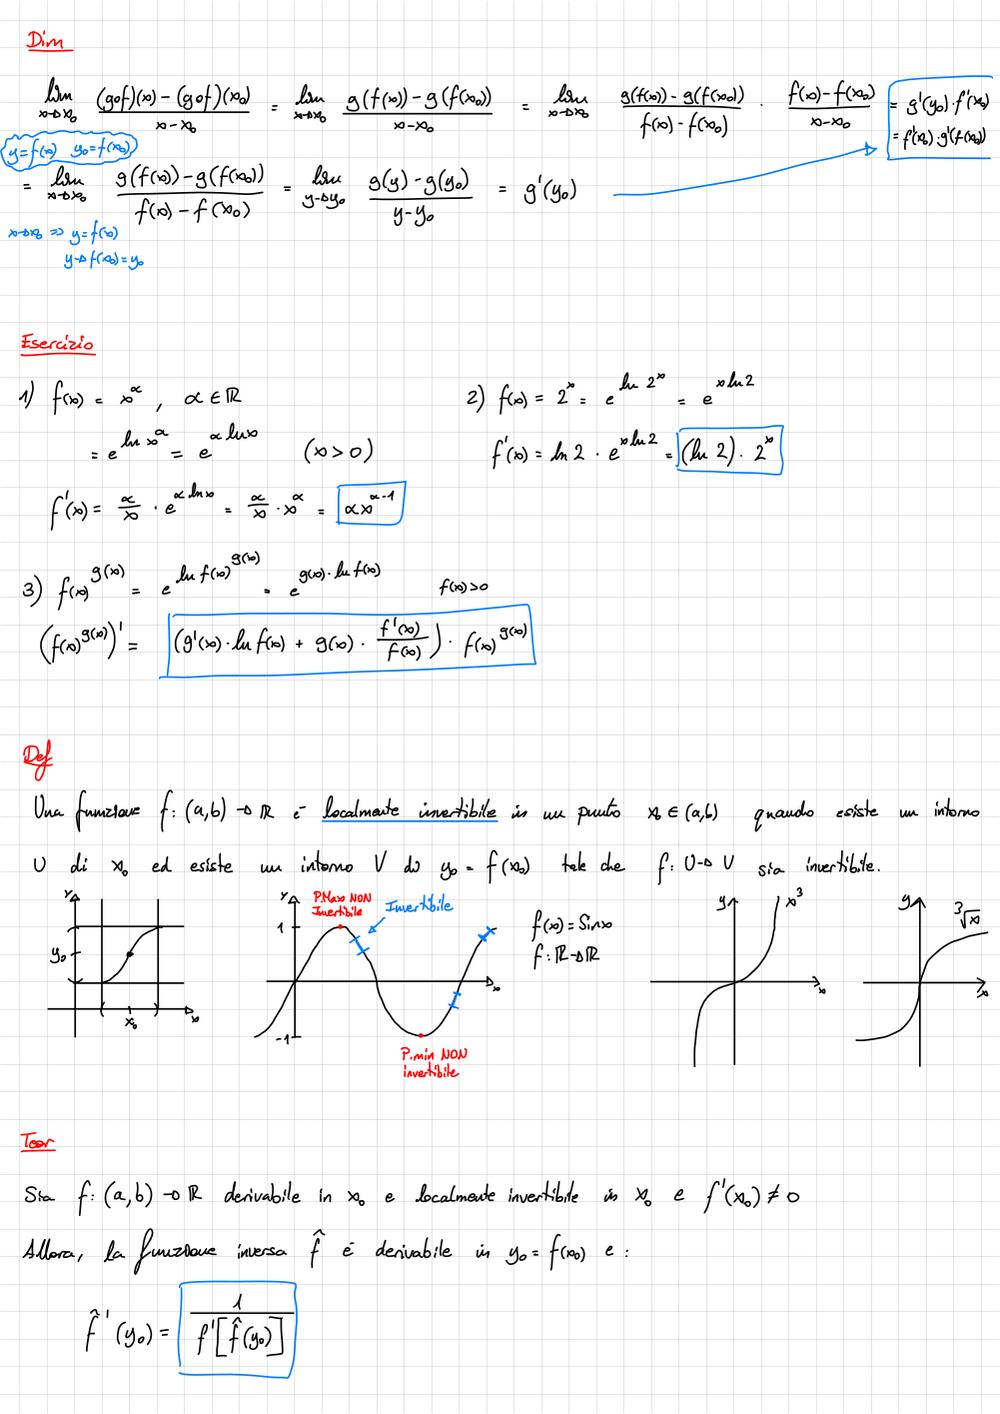 Dim
lim x→x₀ (g∘f)(x) - (g∘f)(x₀) / x - x₀ = lim x→x₀ g(f(x)) - g(f(x₀)) / x - x₀ = lim x→x₀ g(f(x)) - g(f(x₀)) / f(x) - f(x₀) · f(x) - f(x₀) / x - x₀ = g'(y₀) · f'(x₀)
= f'(x₀) · g'(f(x₀))
y = f(x) y₀ = f(x₀)
= lim x→x₀ g(f(x)) - g(f(x₀)) / f(x) - f(x₀) = lim y→y₀ g(y) - g(y₀) / y - y₀ = g'(y₀)
x→x₀ => y = f(x)
y→f(x₀) = y₀
Esercizio
1) f(x) = x^α , α ∈ ℝ
= e^(ln x^α) = e^(α ln x) (x > 0)
f'(x) = α/x · e^(α ln x) = α/x · x^α = αx^(α-1)
2) f(x) = 2^x = e^(ln 2^x) = e^(x ln 2)
f'(x) = ln 2 · e^(x ln 2) = (ln 2) · 2^x
3) f(x)^g(x) = e^(ln f(x)^g(x)) = e^(g(x) · ln f(x)) f(x) > 0
(f(x)^g(x))' = (g'(x) · ln f(x) + g(x) · f'(x)/f(x)) · f(x)^g(x)
Def
Una funzione f: (a,b) → ℝ è localmente invertibile in un punto x₀ ∈ (a,b) quando esiste un intorno
U di x₀ ed esiste un intorno V di y₀ = f(x₀) tale che f: U→V sia invertibile.
Y
y₀
x₀
x
Y
1
-1
x
P.Max NON
Invertibile
Invertibile
P.min NON
invertibile
f(x) = Sinx
f: ℝ→ℝ
y
x³
x
y
³√x
x
Teor
Sia f: (a,b) → ℝ derivabile in x₀ e localmente invertibile in x₀ e f'(x₀) ≠ 0
Allora, la funzione inversa f̂ è derivabile in y₀ = f(x₀) e :
f̂'(y₀) = 1 / f'[f̂(y₀)]